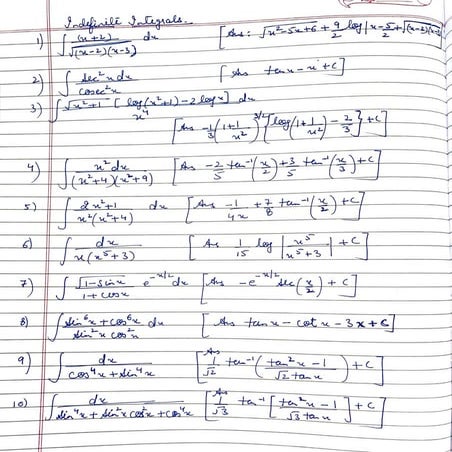 Indefinite Integrals.
1) ∫ (x+2)/√((x-2)(x-3)) dx [Ans: √(x²-5x+6) + 9/2 log|x-5/2+√((x-2)(x-3))
2) ∫ sec²x dx/cosec²x [Ans tanx-x+c]
3) ∫ √(x²+1) [log(x²+1)-2logx]/x⁴ dx
[Ans -1/3 (1+1/x²)^(3/2) {log(1+1/x²) - 2/3} + c]
4) ∫ x²dx/((x²+4)(x²+9)) [Ans -2/5 tan⁻¹(x/2) + 3/5 tan⁻¹(x/3) + c]
5) ∫ (2x²+1)/(x²(x²+4)) dx [Ans -1/4x + 7/8 tan⁻¹(x/2) + c]
6) ∫ dx/(x(x⁵+3)) [Ans 1/15 log |x⁵/(x⁵+3)| + c]
7) ∫ √(1-sinx)/(1+cosx) e^(-x/2) dx [Ans -e^(-x/2) sec(x/2) + c]
8) ∫ (sin⁶x+cos⁶x)/(sin²x cos²x) dx [Ans tanx-cotx-3x+c]
9) ∫ dx/(cos⁴x+sin⁴x) [Ans 1/√2 tan⁻¹((tan²x-1)/(√2 tanx)) + c]
10) ∫ dx/(sin⁴x+sin²x cos²x+cos⁴x) [Ans 1/√3 tan⁻¹[(tan²x-1)/(√3 tanx)] + c]